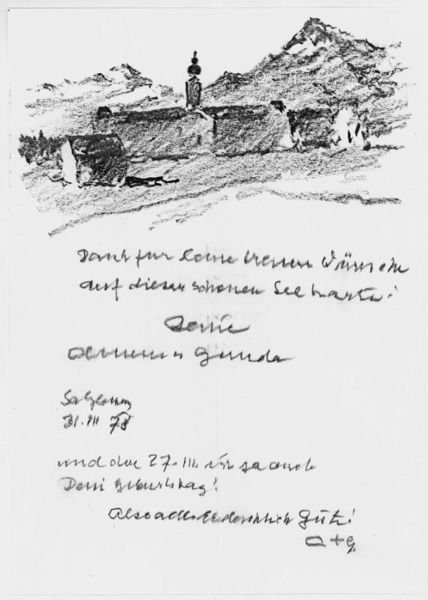 Dank für Deine treuen Wünsche
auf dieser schönen Seekarte!
Deine
und Gunda
Salzburg
31.III 78
und der 27. III ist ja auch
Dein Geburtstag!
Also alles erdenklich Gute!
O + G.